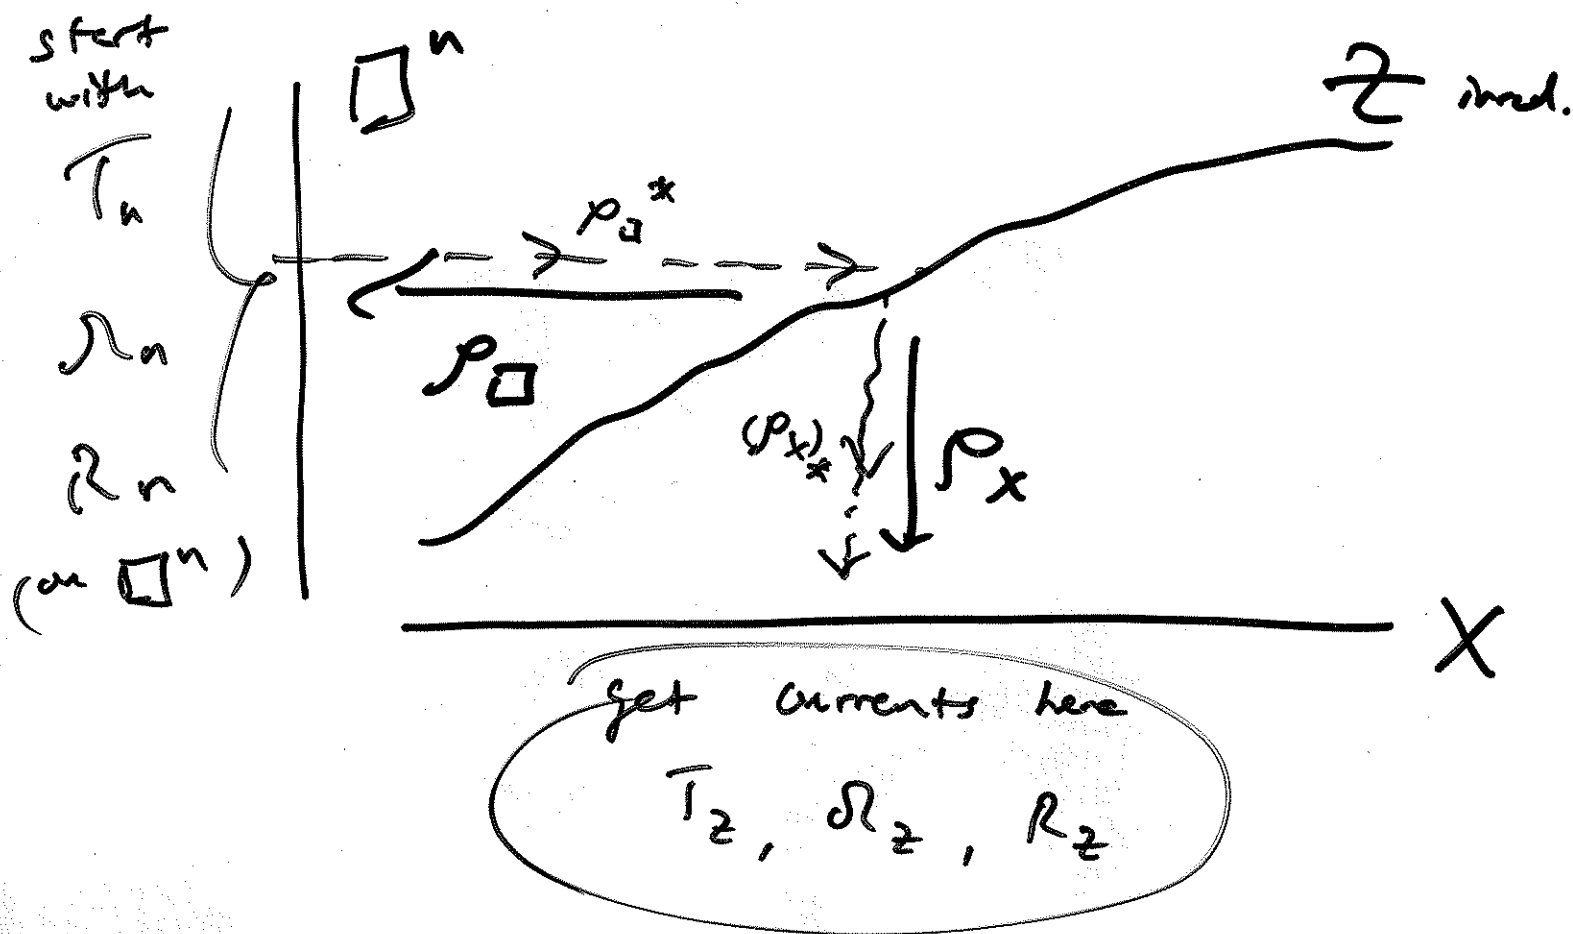 start
with
Tₙ
Ωₙ
Rₙ
(on □ⁿ)
□ⁿ
Z irred.
ρ_□*
ρ_□
(ρ_X)_*
ρ_X
X
get currents here
T_Z, Ω_Z, R_Z